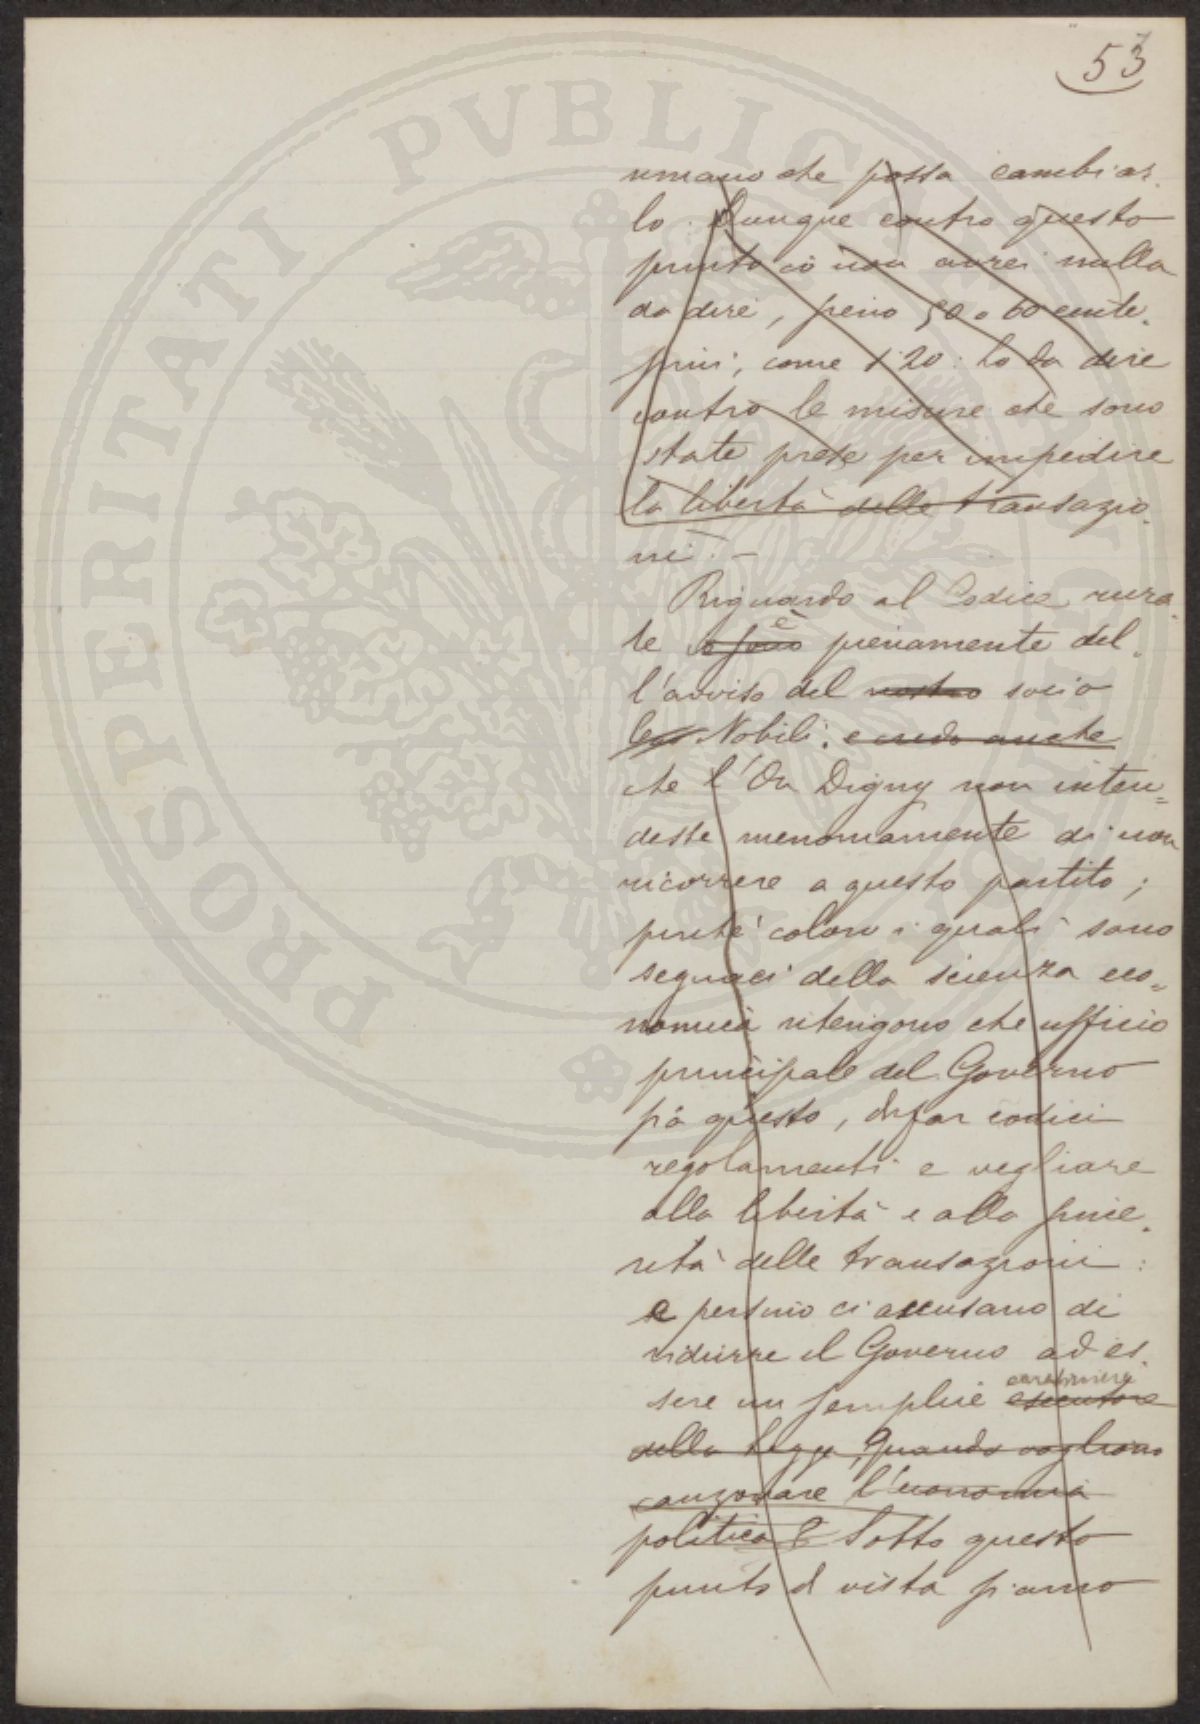 53
umano che possa cambiar.
lo. Dunque contro questo
punto io non avrei nulla
da dire, siano 50 o 60 cente.
simi, come 1.20: ho da dire
contro le misure che sono
state prese per impedire
la libertà delle transazio.
ni. –
Riguardo al Codice rura.
le io sono è pienamente del.
l'avviso del nostro socio
Nobili. e credo anche
che l'On Digny non inten=
desse menomamente di non
ricorrere a questo partito;
perchè coloro i quali sono
seguaci della scienza eco=
nomica ritengono che ufficio
principale del Governo
sia questo, di far codici
regolamenti e vegliare
alla libertà e alla since.
rità delle transazioni:
e persino ci accusano di
ridurre il Governo ad es.
sere un semplice esecutore carabiniere
della legge, quando vogliono
canzonare l'economia
politica E Sotto questo
punto di vista siamo
PROSPERITATI PVBLICAE